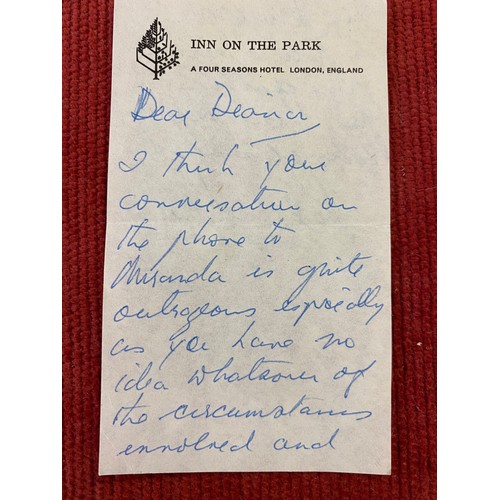 INN ON THE PARK
A FOUR SEASONS HOTEL LONDON, ENGLAND
Dear
I think your
conversation on
the phone to
Miranda is quite
outrageous especially
as you have no
idea whatsoever of
the circumstances
envolved and